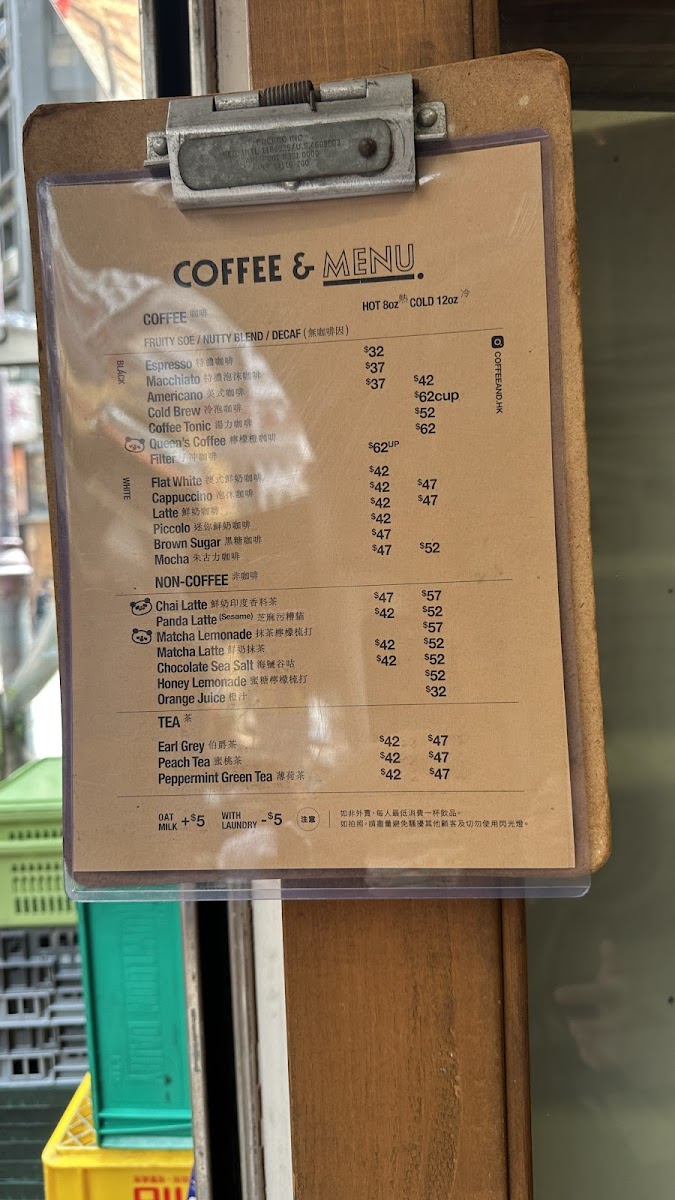 COFFEE & MENU.
COFFEE 咖啡 HOT 8oz 熱 COLD 12oz 冷
FRUITY SOE / NUTTY BLEND / DECAF (無咖啡因)
BLACK
Espresso 特濃咖啡 $32
Macchiato 特濃泡沫咖啡 $37
Americano 美式咖啡 $37 $42
Cold Brew 冷泡咖啡 $62cup
Coffee Tonic 湯力咖啡 $52
Queen's Coffee 檸檬橙咖啡 $62
Filter 手沖咖啡 $62UP
WHITE
Flat White 澳式鮮奶咖啡 $42
Cappuccino 泡沫咖啡 $42 $47
Latte 鮮奶咖啡 $42 $47
Piccolo 迷你鮮奶咖啡 $42
Brown Sugar 黑糖咖啡 $47
Mocha 朱古力咖啡 $47 $52
COFFEEAND.HK
NON-COFFEE 非咖啡
Chai Latte 鮮奶印度香料茶 $47 $57
Panda Latte (Sesame) 芝麻污糟貓 $42 $52
Matcha Lemonade 抹茶檸檬梳打 $57
Matcha Latte 鮮奶抹茶 $42 $52
Chocolate Sea Salt 海鹽谷咕 $42 $52
Honey Lemonade 蜜糖檸檬梳打 $52
Orange Juice 橙汁 $32
TEA 茶
Earl Grey 伯爵茶 $42 $47
Peach Tea 蜜桃茶 $42 $47
Peppermint Green Tea 薄荷茶 $42 $47
OAT MILK +$5 WITH LAUNDRY -$5 注意
如非外賣，每人最低消費一杯飲品。
如拍照，請盡量避免騷擾其他顧客及切勿使用閃光燈。